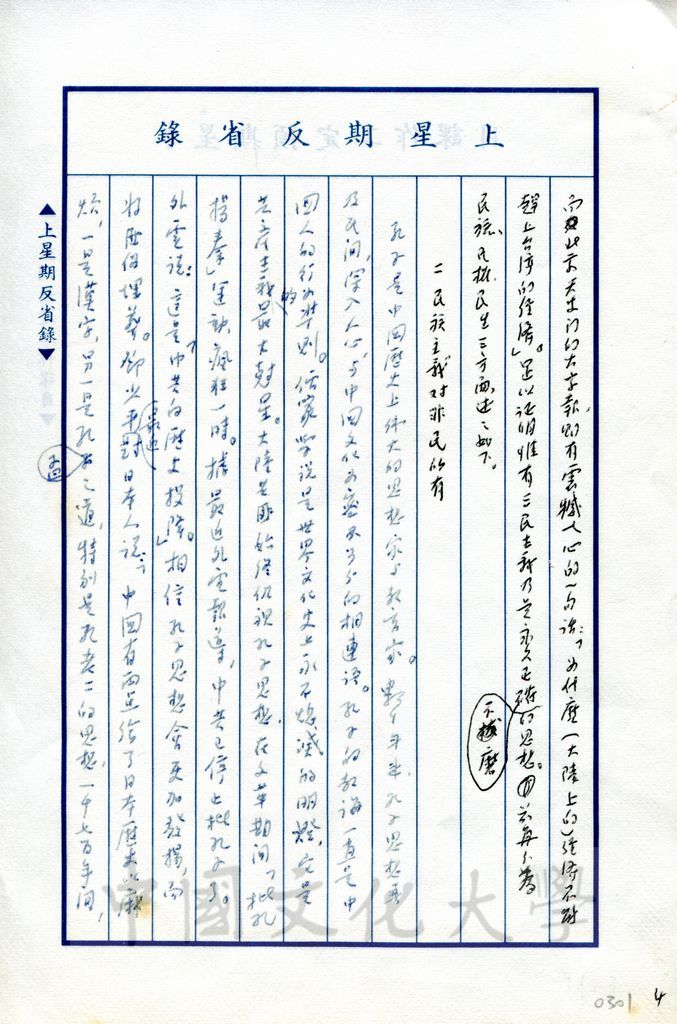 上星期反省錄
而北京天安門的大字報則有震撼人心的一句話:「為什麼(大陸上的)經濟不能
趕上台灣的經濟」。足以證明惟有三民主義乃是永久正確的思想。茲再分為
不磨
民族、民權、民生三方面述之如下。
二 民族主義對非民的有
孔子是中國歷史上偉大的思想家與教育家。數千年來,孔子思想
及民間,深入人心,與中國文化為密不可分的相連詞。孔子的教誨一直是中
國人的行為的準則。儒家學說是世界文化史上永不熄滅的明燈,它是
共產主義最大剋星。大陸共匪始終仇視孔子思想,在文革期間「批孔
揚秦」運動,瘋狂一時。據最近外電報導,中共已停止批孔子了。
外電說:「這是中共的歷史投降」。相信孔子思想會更加發揚,而
將馬 埋葬。鄧小平最近對日本人說:「中國有兩點給了日本歷史以麻
煩,一是漢字,另一是孔孟之道,特別是孔老二的思想,一千七百年間,
孟
▲上星期反省錄▼
中國文化大學
0301
4